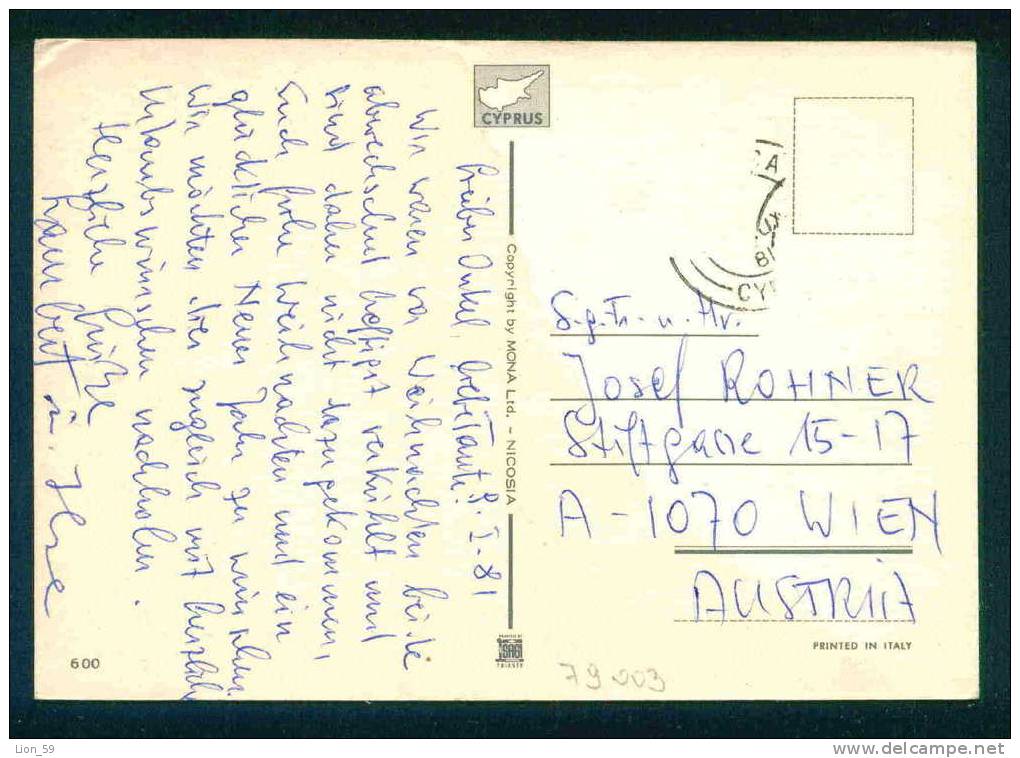 CYPRUS
Lieber Onkel, liebe Tante! 9.I.81
Wir waren vor Weihnachten beide
abwechselnd heftigst verkühlt und
sind daher nicht dazugekommen,
Euch frohe Weihnachten und ein
glückliches Neues Jahr zu wünschen.
Wir möchten dies zugleich mit herzlich
nachholen.
Herzliche Grüße
u. Ilse
Copyright by MONA Ltd. - NICOSIA
PRINTED BY
SAGI
TRIESTE
A
81
CY
S.g. Fr. u. Hr.
Josef ROHNER
Stiftgasse 15-17
A-1070 WIEN
AUSTRIA
PRINTED IN ITALY
600
79003
Lion_59
www.delcampe.net